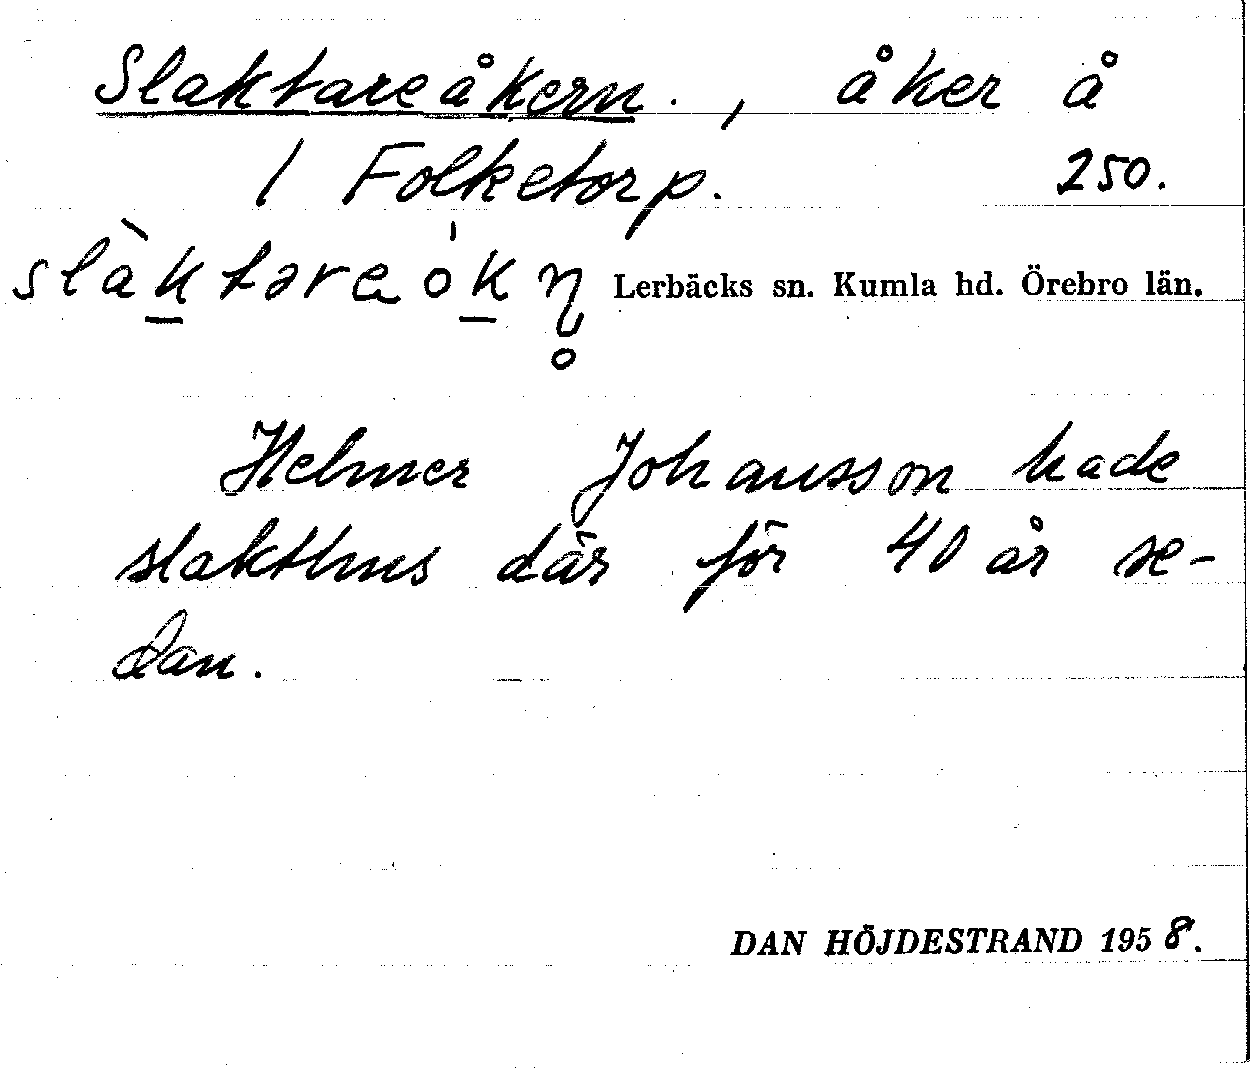 Slaktareåkern., åker å
1 Folketorp. 250.
slàktareókn̥ Lerbäcks sn. Kumla hd. Örebro län.
Helmer Johansson hade
slakthus där för 40 år se-
dan.
DAN HÖJDESTRAND 1958.